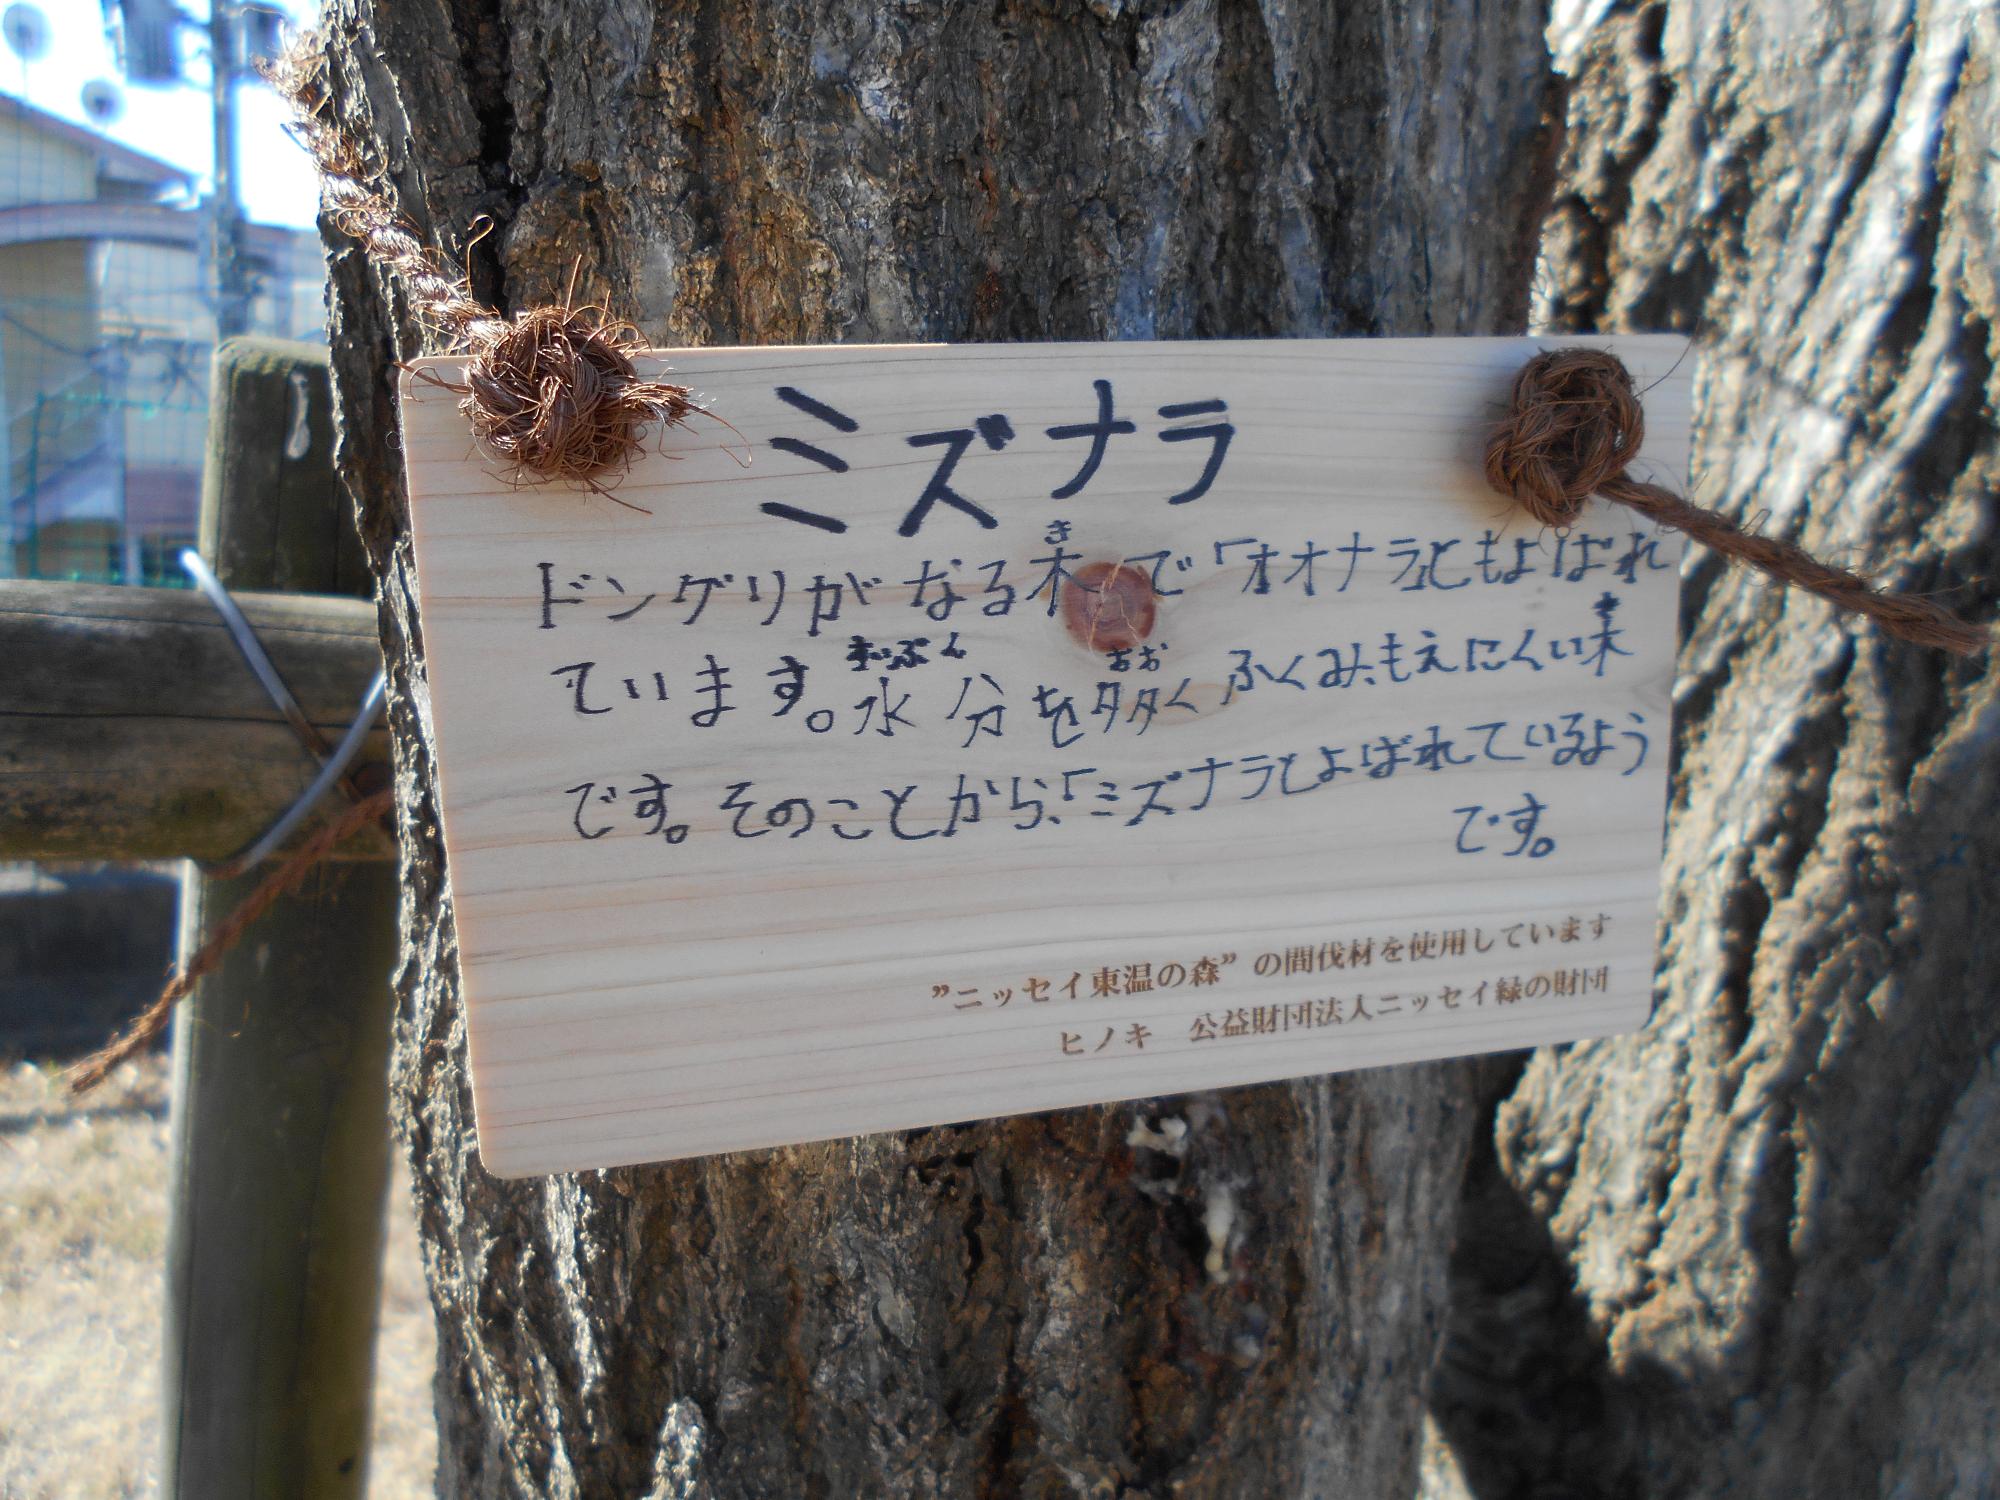 ミズナラ
ドングリがなる木で「オオナラ」ともよばれ
ています。水分を多くふくみ、もえにくい木
です。そのことから、「ミズナラ」とよばれているよう
です。
”ニッセイ東温の森”の間伐材を使用しています
ヒノキ　公益財団法人ニッセイ緑の財団